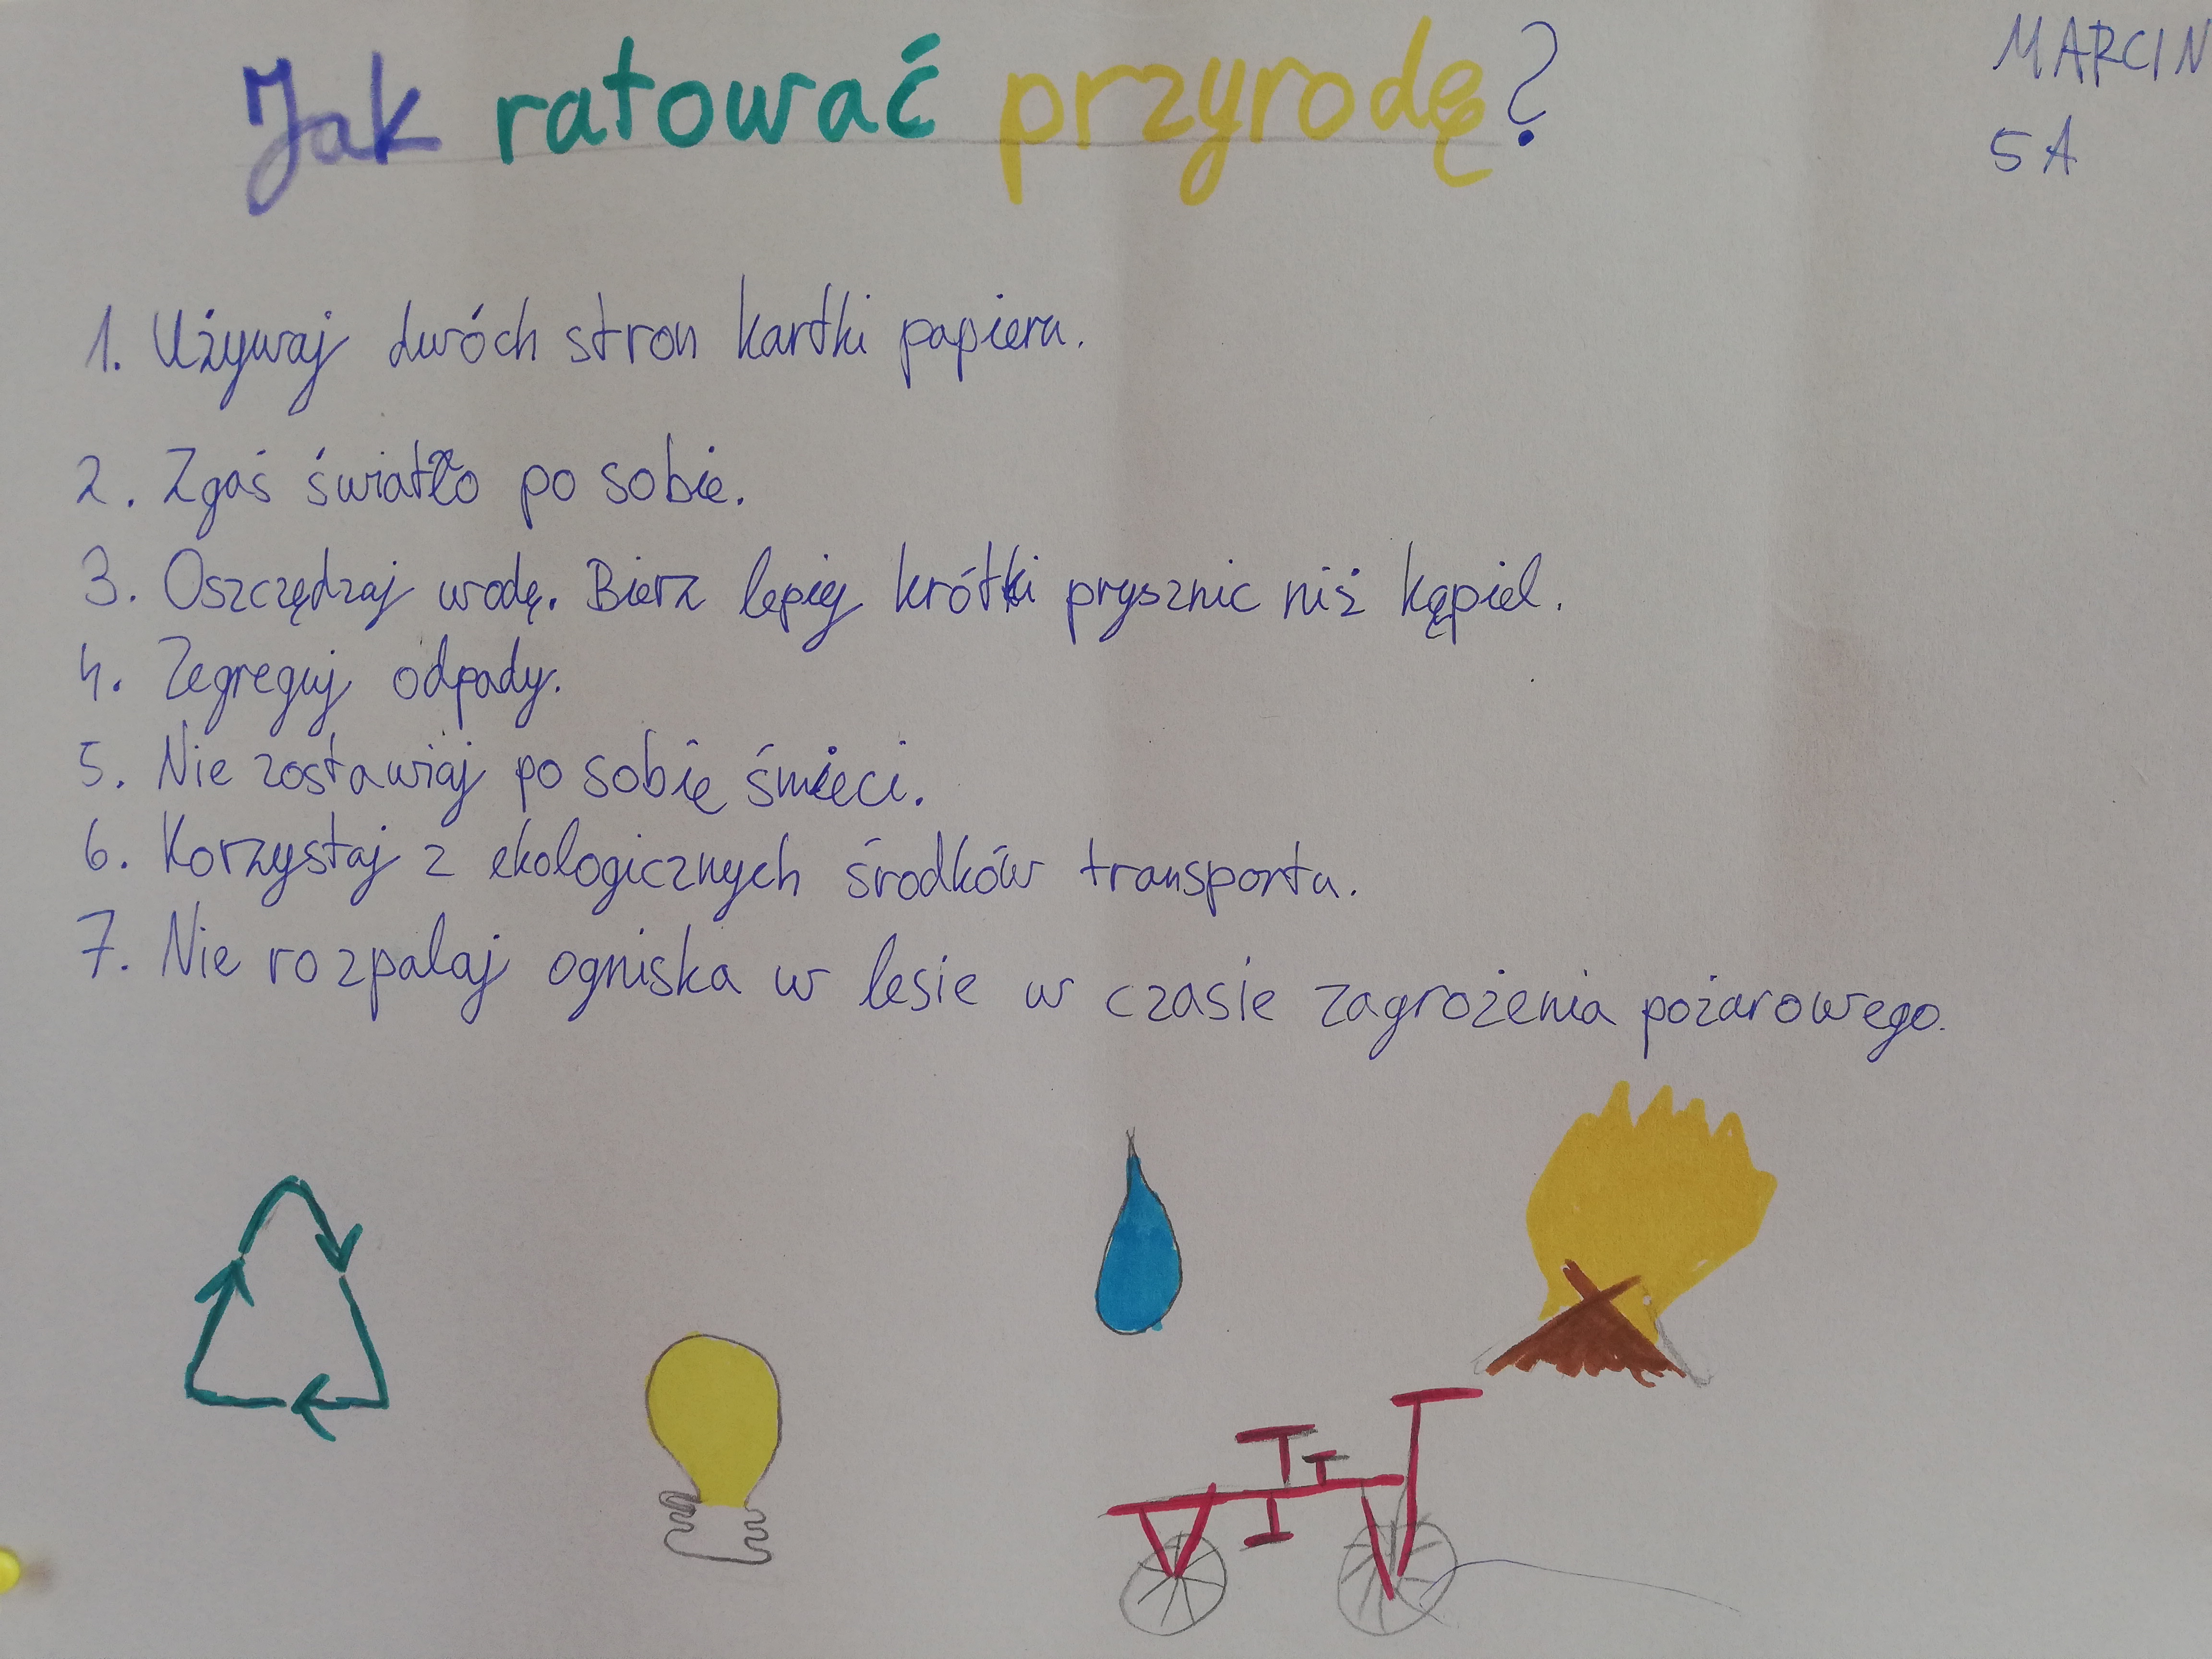 Jak ratować przyrodę?
MARCIN
5A
1. Używaj dwóch stron kartki papieru.
2. Zgaś światło po sobie.
3. Oszczędzaj wodę. Bierz lepiej krótki prysznic niż kąpiel.
4. Zegreguj odpady.
5. Nie zostawiaj po sobie śmieci.
6. Korzystaj z ekologicznych środków transportu.
7. Nie rozpalaj ogniska w lesie w czasie zagrożenia pożarowego.